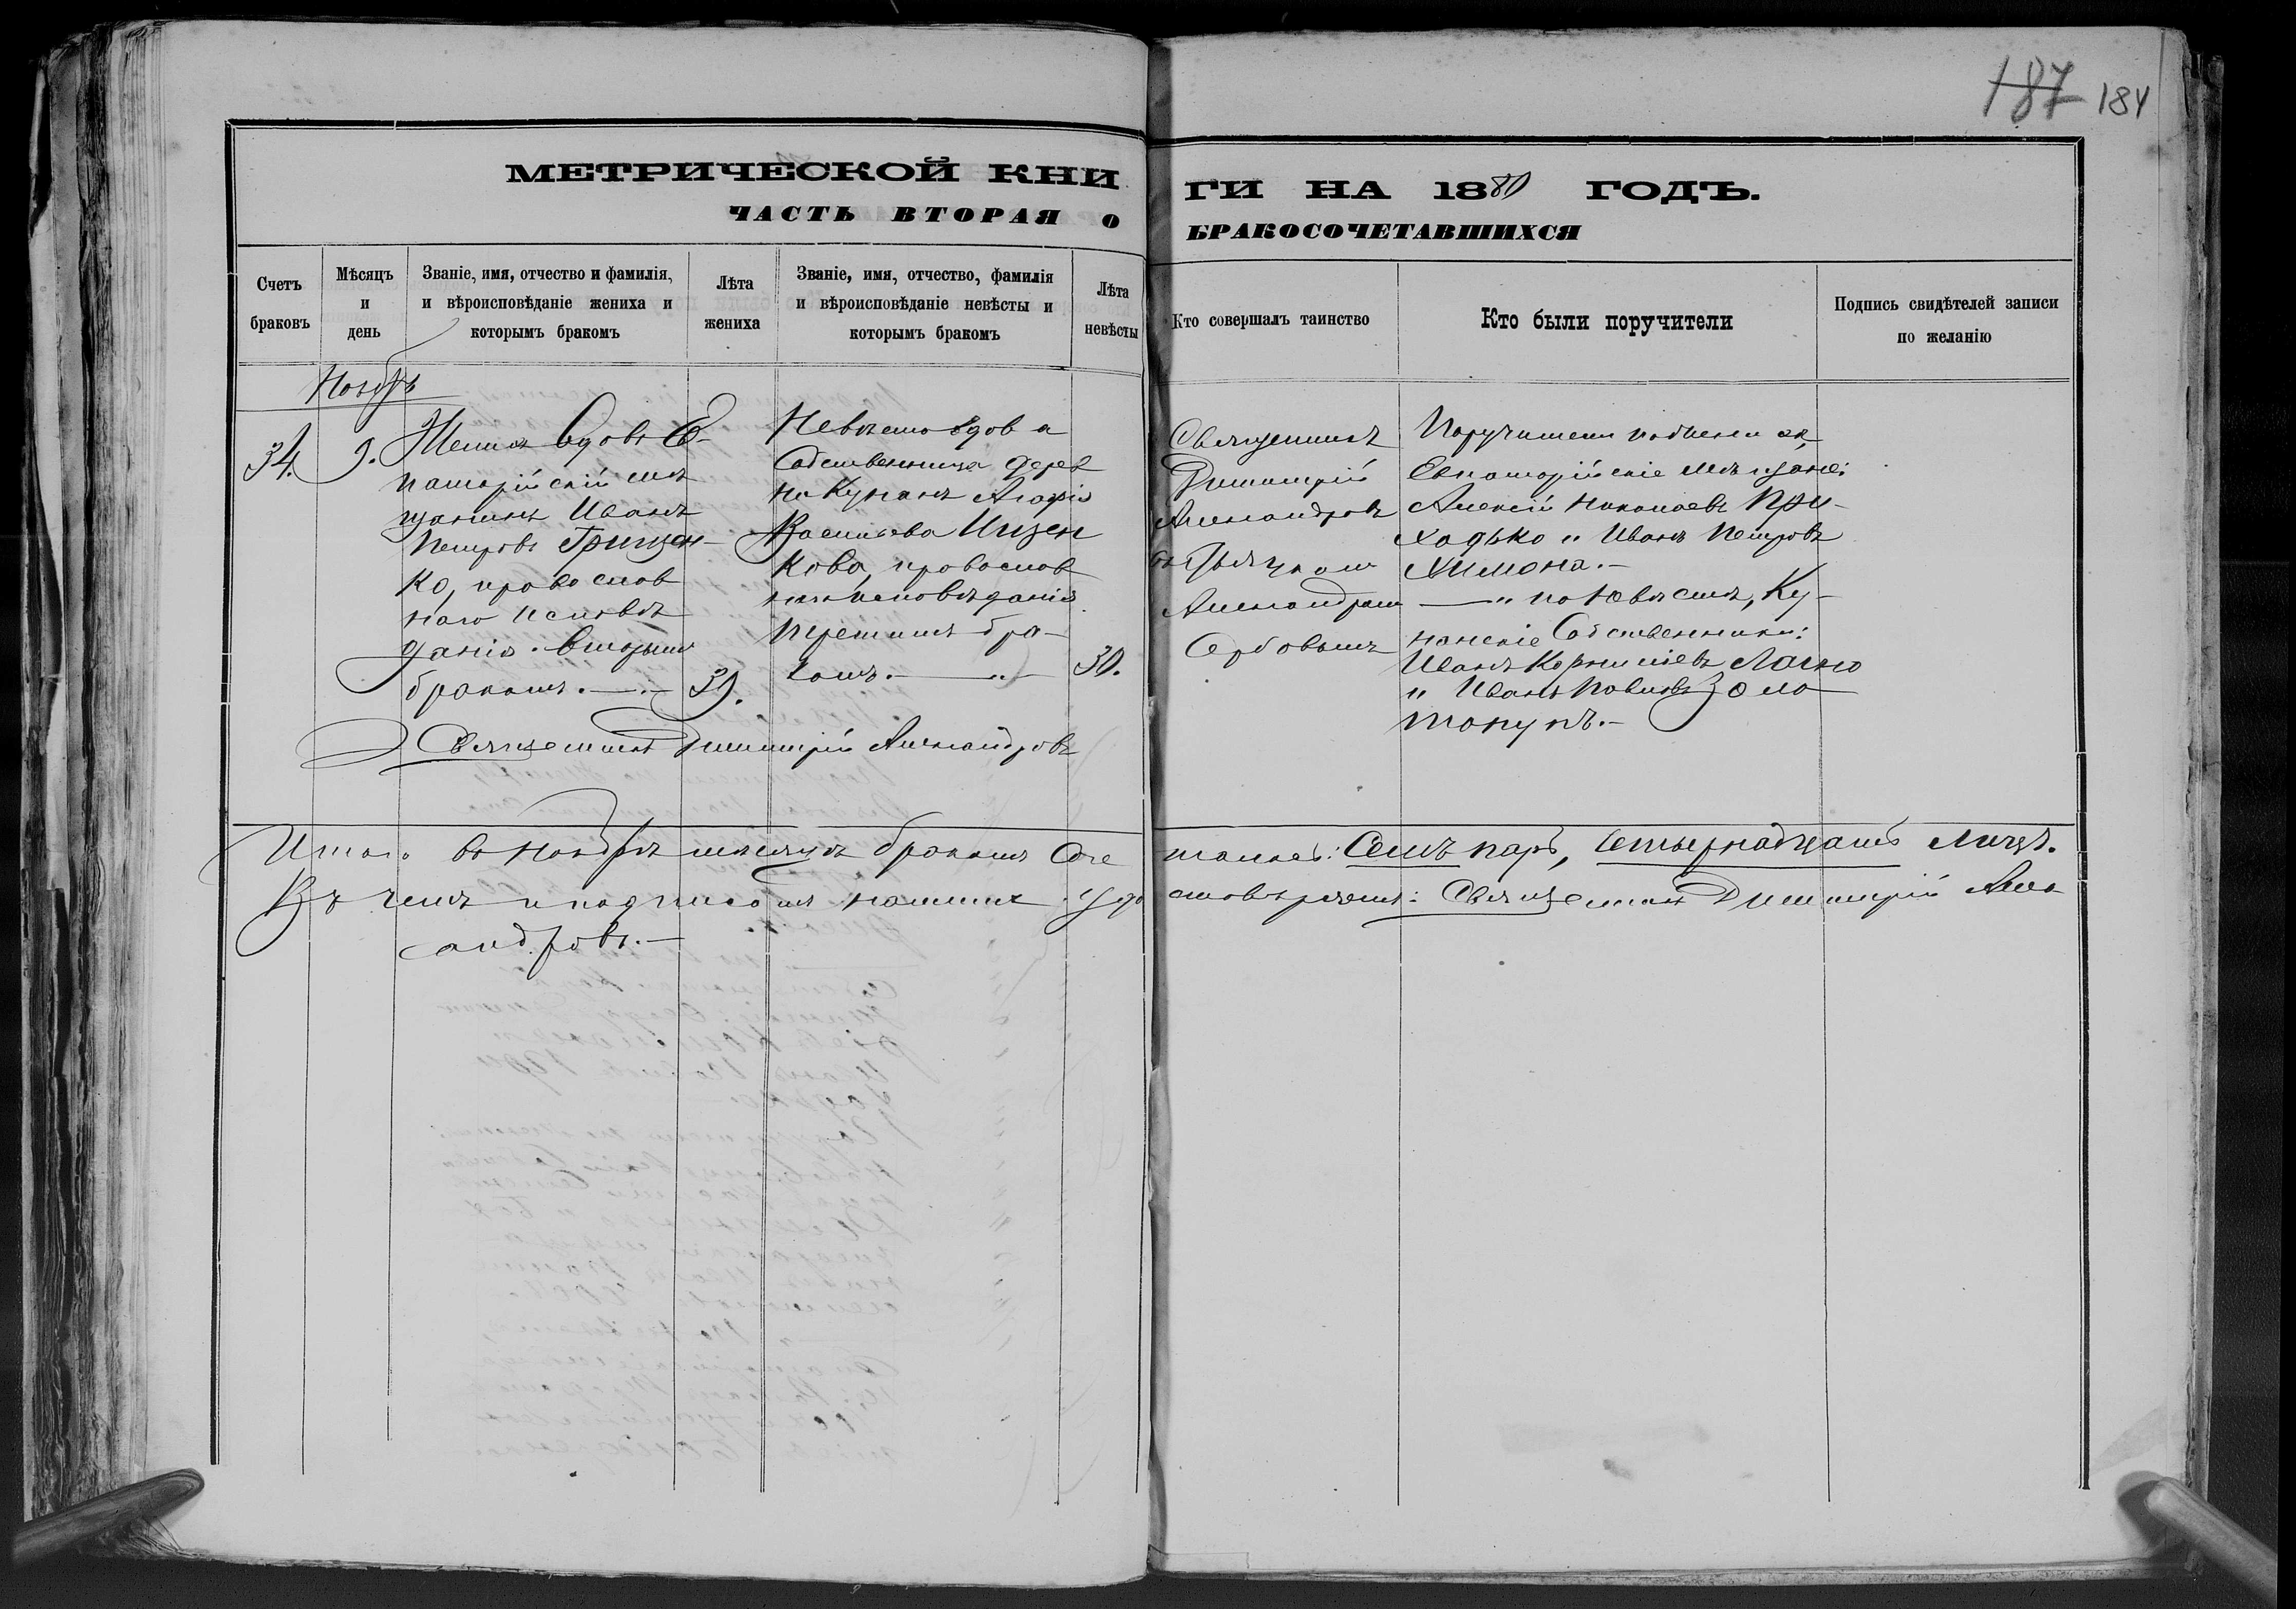 187 184
МЕТРИЧЕСКОЙ КНИ ГИ НА 1880 ГОДЪ.
ЧАСТЬ ВТОРАЯ О БРАКОСОЧЕТАВШИХСЯ
Счетъ браковъ
Мѣсяцъ и день
Званіе, имя, отчество и фамилія,
и вѣроисповѣданіе жениха и
которымъ бракомъ
Лѣта
жениха
Званіе, имя, отчество, фамилія
и вѣроисповѣданіе невѣсты и
которымъ бракомъ
Лѣта
невѣсты
Кто совершалъ таинство
Кто были поручители
Подпись свидѣтелей записи
по желанію
Ноябрь
34.
9.
Женихъ вдовъ Ев
паторійскій мѣ
щанинъ Иванъ
Петровъ Грищен-
ко, православ
наго исповѣ
данія. Вторымъ
бракомъ.
39.
Невѣста вдова
Собственница дерев
ни Кунанъ Агафія
Васильева Ищен
кова, православ
наго исповѣданія
первымъ бра-
комъ.
30.
Священникъ
Димитрій
Александровъ
съ Дьячкомъ
Александромъ
Сербовымъ
Поручители по женихѣ,
Евпаторійскіе мѣщане:
Алексій Николаевъ При-
ходько и Иванъ Петровъ
Химона.
по Невѣстѣ, Ку-
нанскіе Собственники:
Иванъ Корниліевъ Лагно
и Иванъ Павловъ Золо
Священникъ Димитрій Александровъ
Итого въ Ноябрѣ мѣсяцѣ бракомъ Соче талось: Семь паръ, четырнадцать лицъ.
Въ чемъ и подписомъ нашимъ удо стовѣряемъ: Священникъ Димитрій Алек
сандровъ.